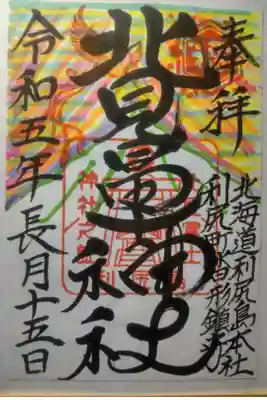 奉拝
北海道利尻島本社
利尻町沓形鎮座
北見冨士神社
令和五年長月十五日